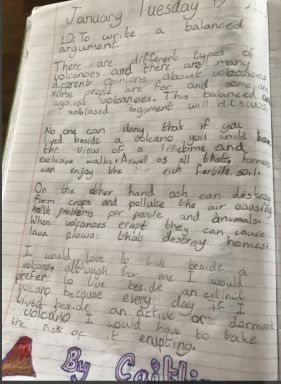 January Tuesday
LO: To write a balanced
argument.
There are different types of
volcanoes and there are many
different opinions about volcanoes
Some people are for and some are
against volcanoes. This balanced an
unbiased argument will discuss
No one can deny that if you
lived beside a volcano you would have
the view of a lifetime and
exclusive walks. Aswell as all thats farmers
can enjoy the rich fertile soil.
On the other hand ash can destroy
farm crops and pollute the air causing
health problems for people and animals.
When volcanoes erupt they can cause
lava flows thats destroy homes.
I would love to live beside a
volcano although for me I would
prefer to live beside an extinct
volcano because every day if I
lived beside an active or dormant
volcano I would have to take
the risk of it erupting.
By Caitli